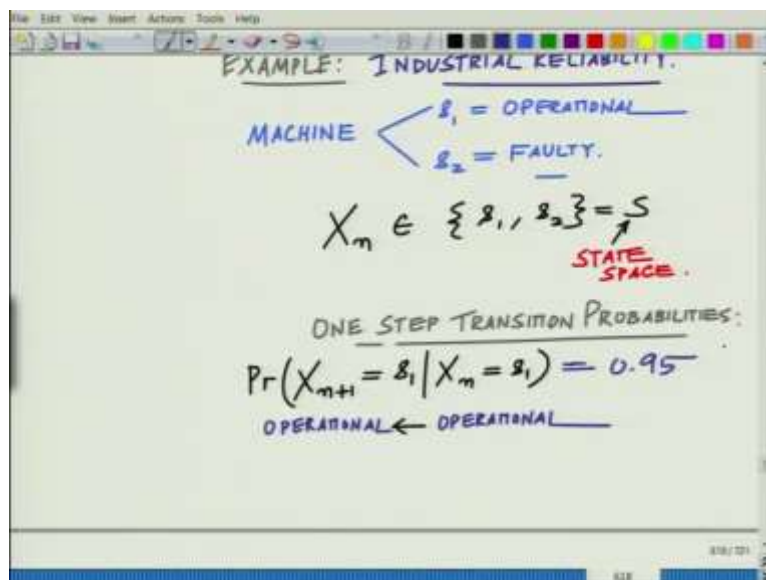 File Edit View Insert Actions Tools Help
EXAMPLE: INDUSTRIAL RELIABILITY.
MACHINE
s₁ = OPERATIONAL
s₂ = FAULTY.
Xₙ ∈ {s₁, s₂} = S
STATE SPACE.
ONE STEP TRANSITION PROBABILITIES:
Pr(Xₙ₊₁ = s₁ | Xₙ = s₁) = 0.95
OPERATIONAL ← OPERATIONAL